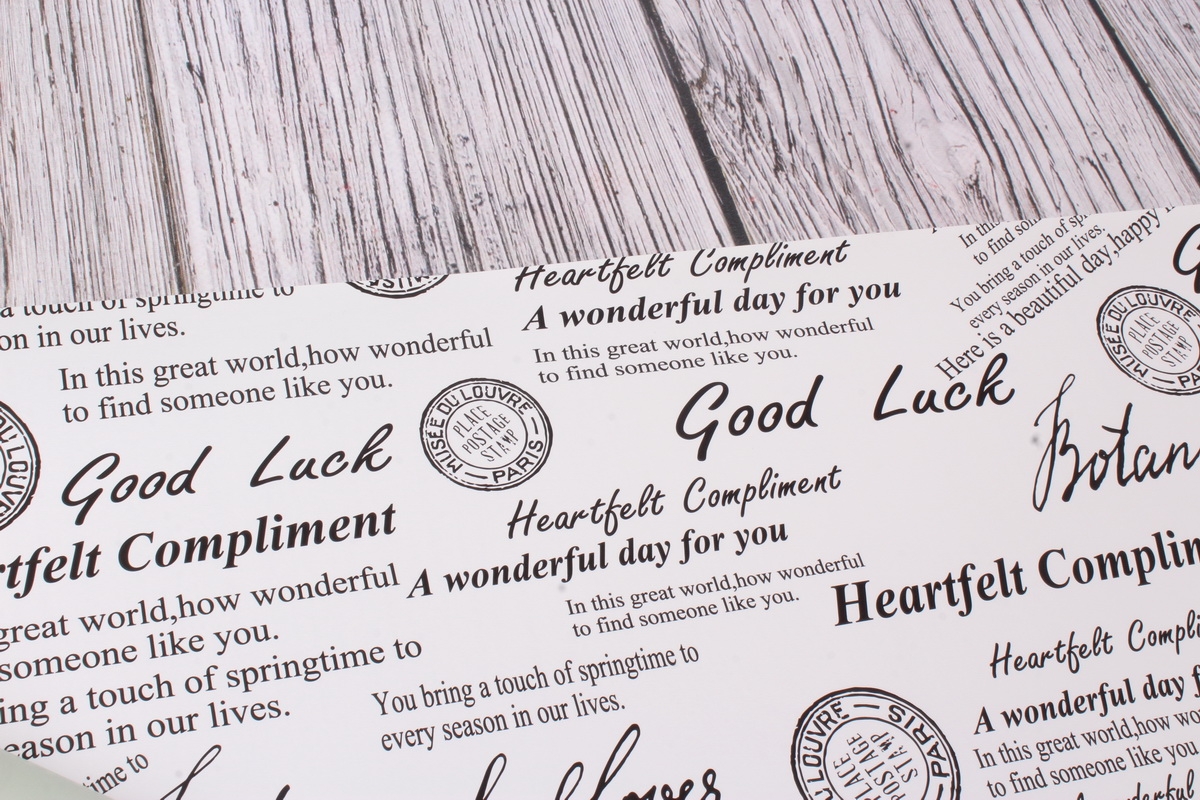 a touch of springtime to
on in our lives.
In this great world,how wonderful
to find someone like you.
Good Luck
rtfelt Compliment
great world,how wonderful
someone like you.
ing a touch of springtime to
eason in our lives.
time to
DU LOUVRE
STAMP
MUSÉE DU LOUVRE
PLACE
POSTAGE
STAMP
PARIS
Heartfelt Compliment
A wonderful day for you
In this great world,how wonderful
to find someone like you.
Good Luck
Heartfelt Compliment
A wonderful day for you
In this great world,how wonderful
to find someone like you.
You bring a touch of springtime to
every season in our lives.
In this
to find som
You bring a touch of sp
every season in our lives.
Here is a beautiful day,happy
MUSÉE DU LOUVRE
PLACE
POSTAGE
STAMP
PARIS
G
Botan
Heartfelt Complim
Heartfelt Compli
A wonderful day f
In this great world,how wo
to find someone like you
U LOUVRE
PLACE
POSTAGE
STAMP
PARIS